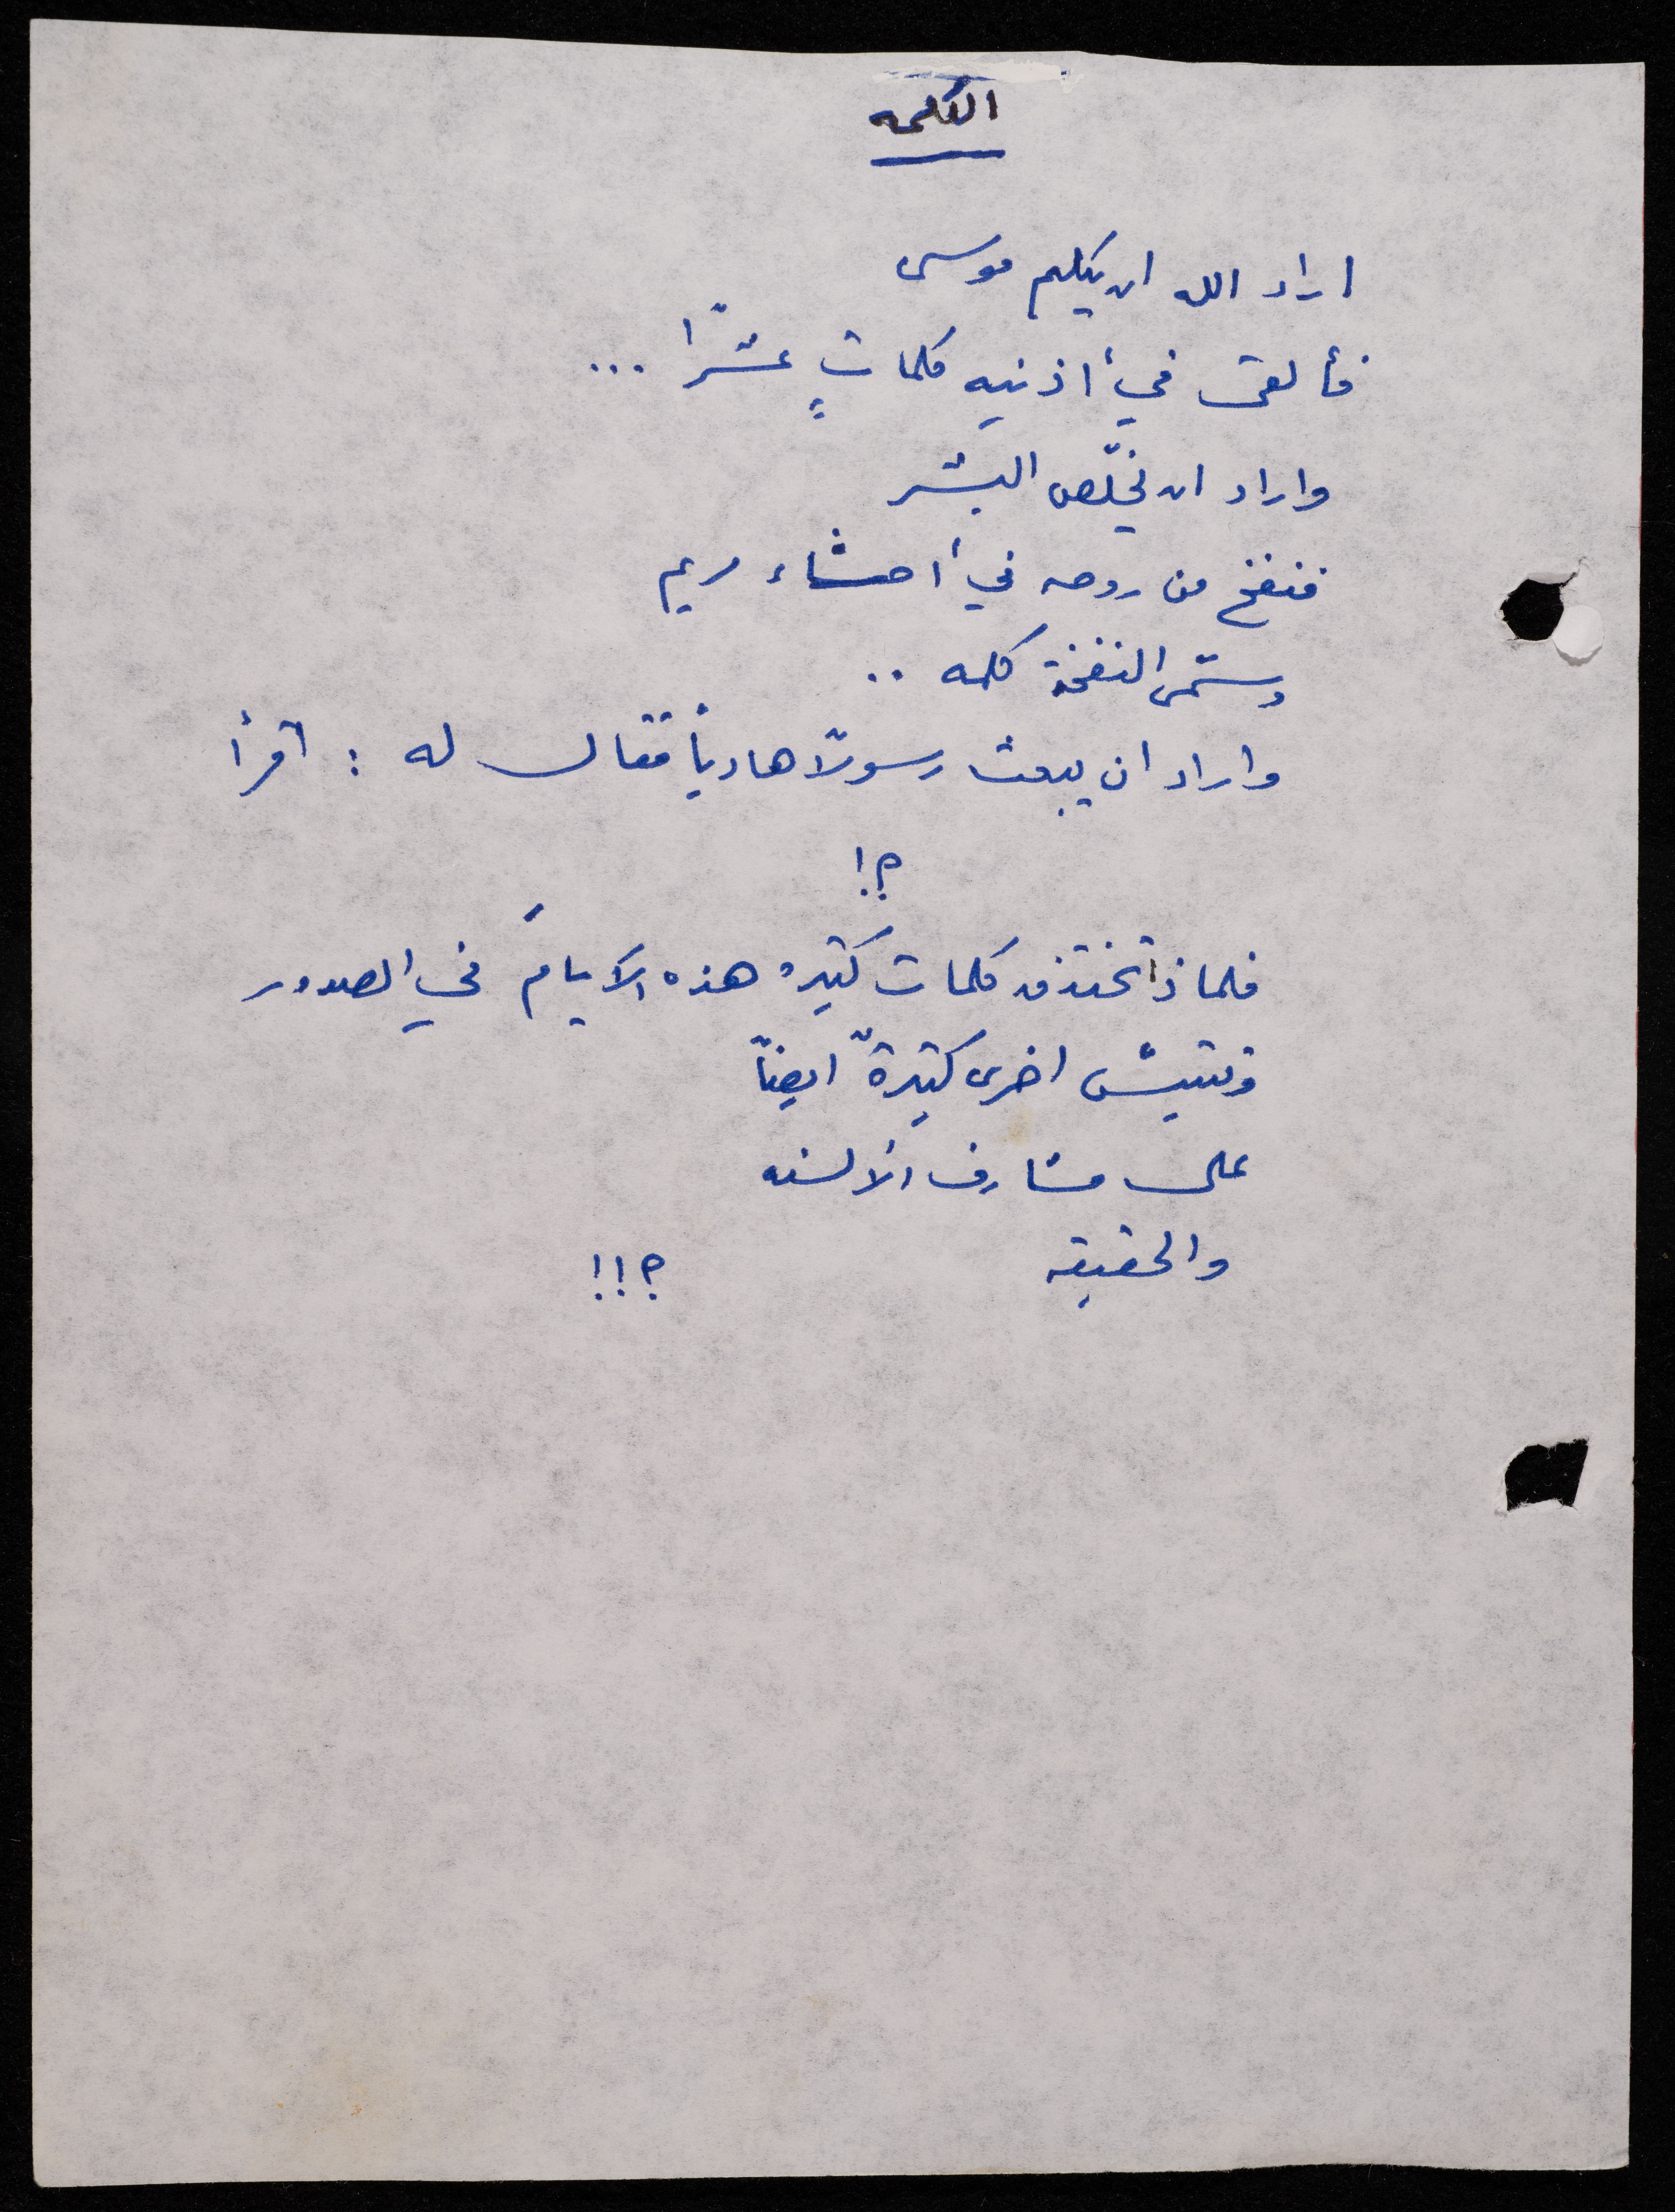 الكلمه
اراد الله ان يكلم موسى
فألقى في أذنيه كلماتٍ عشرًا ...
واراد ان يخلّص البشر
فنفخ من روحه في أحشاء مريم
وسمّى النفخة كلمه ..
واراد ان يبعث رسولًا هاديأ فقال له : اقرأ
؟!
فلماذا تختنق كلمات كثيره هذه الايامَ في الصدور
وتتيبّس اخرى كثيرةٌ ايضًا
على مشارف الألسنه
والحقيقه ؟!!